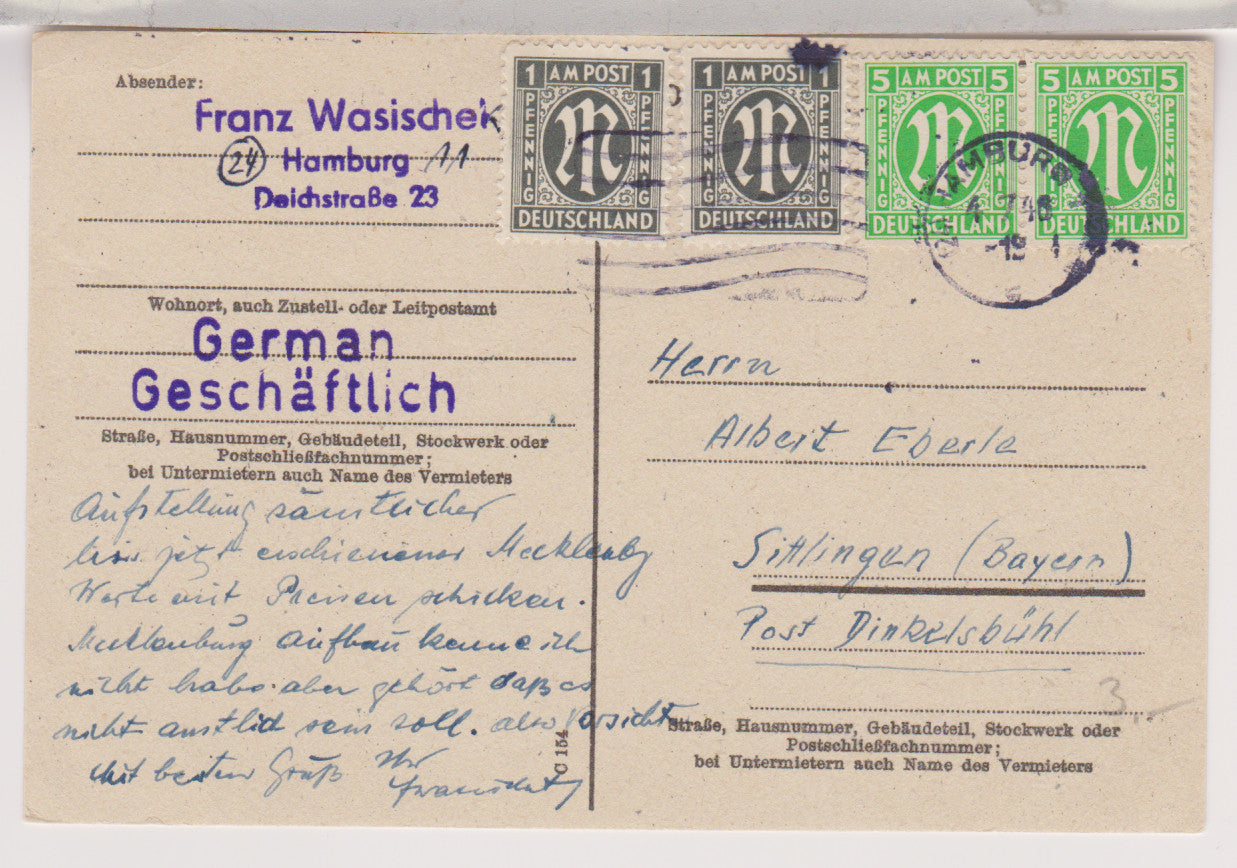 Absender:
Franz Wasischek
(24) Hamburg 11
Deichstraße 23
Wohnort, auch Zustell- oder Leitpostamt
German
Geschäftlich
Straße, Hausnummer, Gebäudeteil, Stockwerk oder
Postschließfachnummer;
bei Untermietern auch Name des Vermieters
Aufstellung sämtlicher
bis jetzt erschienener Mecklenbg
Werte mit Preisen schicken.
Mecklenburg Aufbau kenne ich
nicht habe aber gehört daß es
nicht amtlich sein soll. also Vorsicht
Mit besten Gruß Ihr
C 154
1 AM POST 1
PFENNIG PFENNIG
DEUTSCHLAND
1 AM POST 1
PFENNIG PFENNIG
DEUTSCHLAND
5 AM POST 5
PFENNIG PFENNIG
DEUTSCHLAND
5 AM POST 5
PFENNIG PFENNIG
DEUTSCHLAND
HAMBURG
Herrn
Albert Eberle
Sittlingen (Bayern)
Post Dinkelsbühl
3,-
Straße, Hausnummer, Gebäudeteil, Stockwerk oder
Postschließfachnummer;
bei Untermietern auch Name des Vermieters